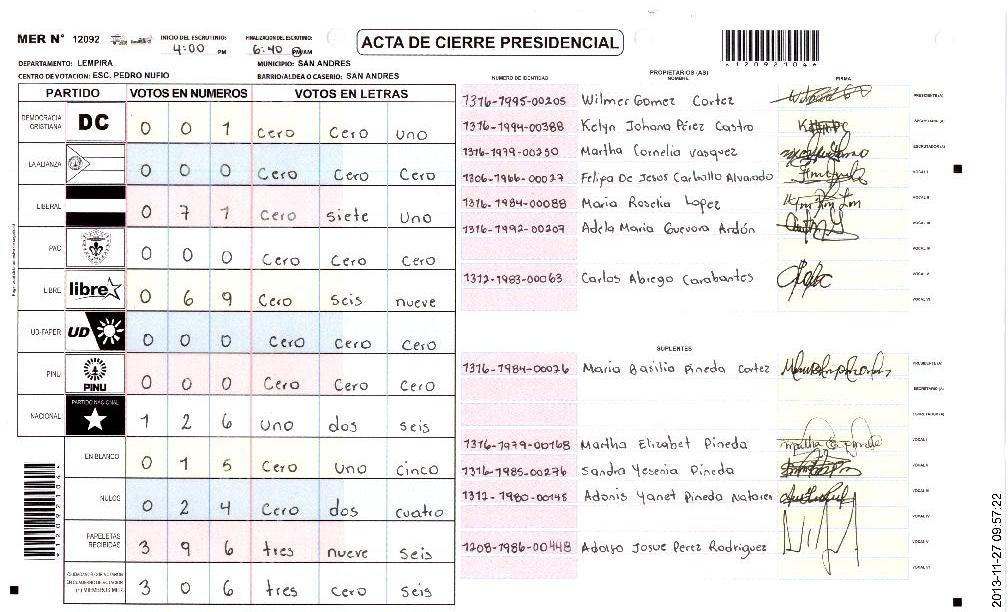 MER N° 12092 INICIO DEL ESCRUTINIO: 4:00 PM FINALIZACION DEL ESCRUTINIO: 6:40 PM/AM
ACTA DE CIERRE PRESIDENCIAL
DEPARTAMENTO: LEMPIRA MUNICIPIO: SAN ANDRES
CENTRO DE VOTACION: ESC. PEDRO NUFIO BARRIO/ALDEA O CASERIO: SAN ANDRES
PARTIDO VOTOS EN NUMEROS VOTOS EN LETRAS
DEMOCRACIA CRISTIANA DC 0 0 1 Cero Cero uno
LA ALIANZA 0 0 0 Cero Cero Cero
LIBERAL 0 7 1 Cero siete Uno
PAC 0 0 0 Cero Cero Cero
LIBRE libre 0 6 9 Cero seis nueve
UD-FAPER UD 0 0 0 Cero Cero Cero
PINU PINU 0 0 0 Cero Cero Cero
NACIONAL PARTIDO NACIONAL 1 2 6 uno dos seis
EN BLANCO 0 1 5 Cero uno cinco
NULOS 0 2 4 Cero dos cuatro
PAPELETAS RECIBIDAS 3 9 6 tres nueve seis
CIUDADANOS QUE VOTARON EN CUADERNO DE VOTACION (+) MIEMBROS MER 3 0 6 tres Cero seis
*12092104*
NUMERO DE IDENTIDAD PROPIETARIOS (AS) NOMBRE FIRMA
1316-1995-00205 Wilmer Gomez Cortez PRESIDENTE (A)
1316-1994-00388 Kelyn Johana Pérez Castro SECRETARIO (A)
1316-1979-00250 Martha Cornelia vasquez ESCRUTADOR (A)
1306-1966-00027 Felipa De Jesus Carballo Alvarado VOCAL I
1316-1984-00088 Maria Roselia Lopez VOCAL II
1316-1992-00207 Adela Maria Guevara Ardón VOCAL III
VOCAL IV
1312-1983-00063 Carlos Abrego Carabantes VOCAL V
VOCAL VI
SUPLENTES
1316-1984-00026 Maria Basilia Pineda Cortez PRESIDENTE (A)
SECRETARIO (A)
ESCRUTADOR (A)
1316-1979-00168 Martha Elizabet Pineda VOCAL I
1316-1985-00276 Sandra Yesenia Pineda VOCAL II
1312-1980-00148 Adonis Yanet Pineda Nataren VOCAL III
VOCAL IV
1208-1986-00448 Adolfo Josue Perez Rodriguez VOCAL V
VOCAL VI
2013-11-27 09:57:22